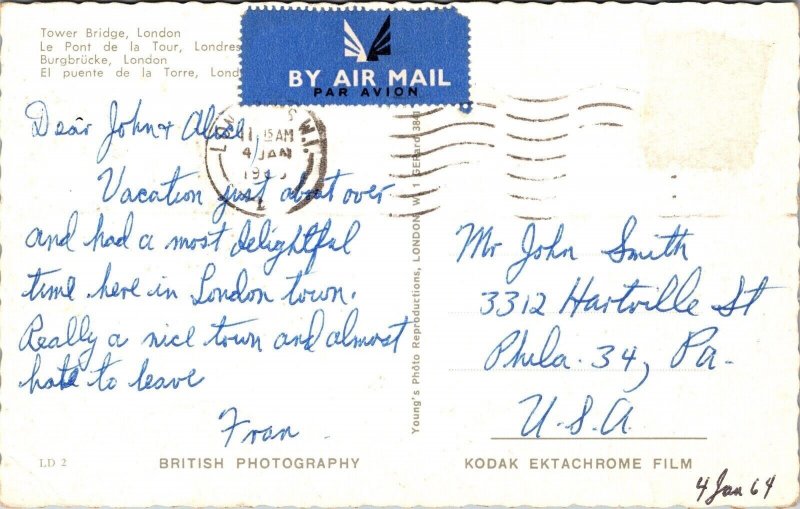 Tower Bridge, London
Le Pont de la Tour, Londres
Burgbrücke, London
El puente de la Torre, Lond
BY AIR MAIL
PAR AVION
15 AM
4 JAN
W.1.
Dear John & Alice,
Vacation just about over
and had a most delightful
time here in London town.
Really a nice town and almost
hate to leave
Fran
Young's Photo Reproductions, LONDON, W. 1 GERrard
Mr John Smith
3312 Hartville St
Phila. 34, Pa.
U.S.A.
LD 2
BRITISH PHOTOGRAPHY
KODAK EKTACHROME FILM
4 Jan 64